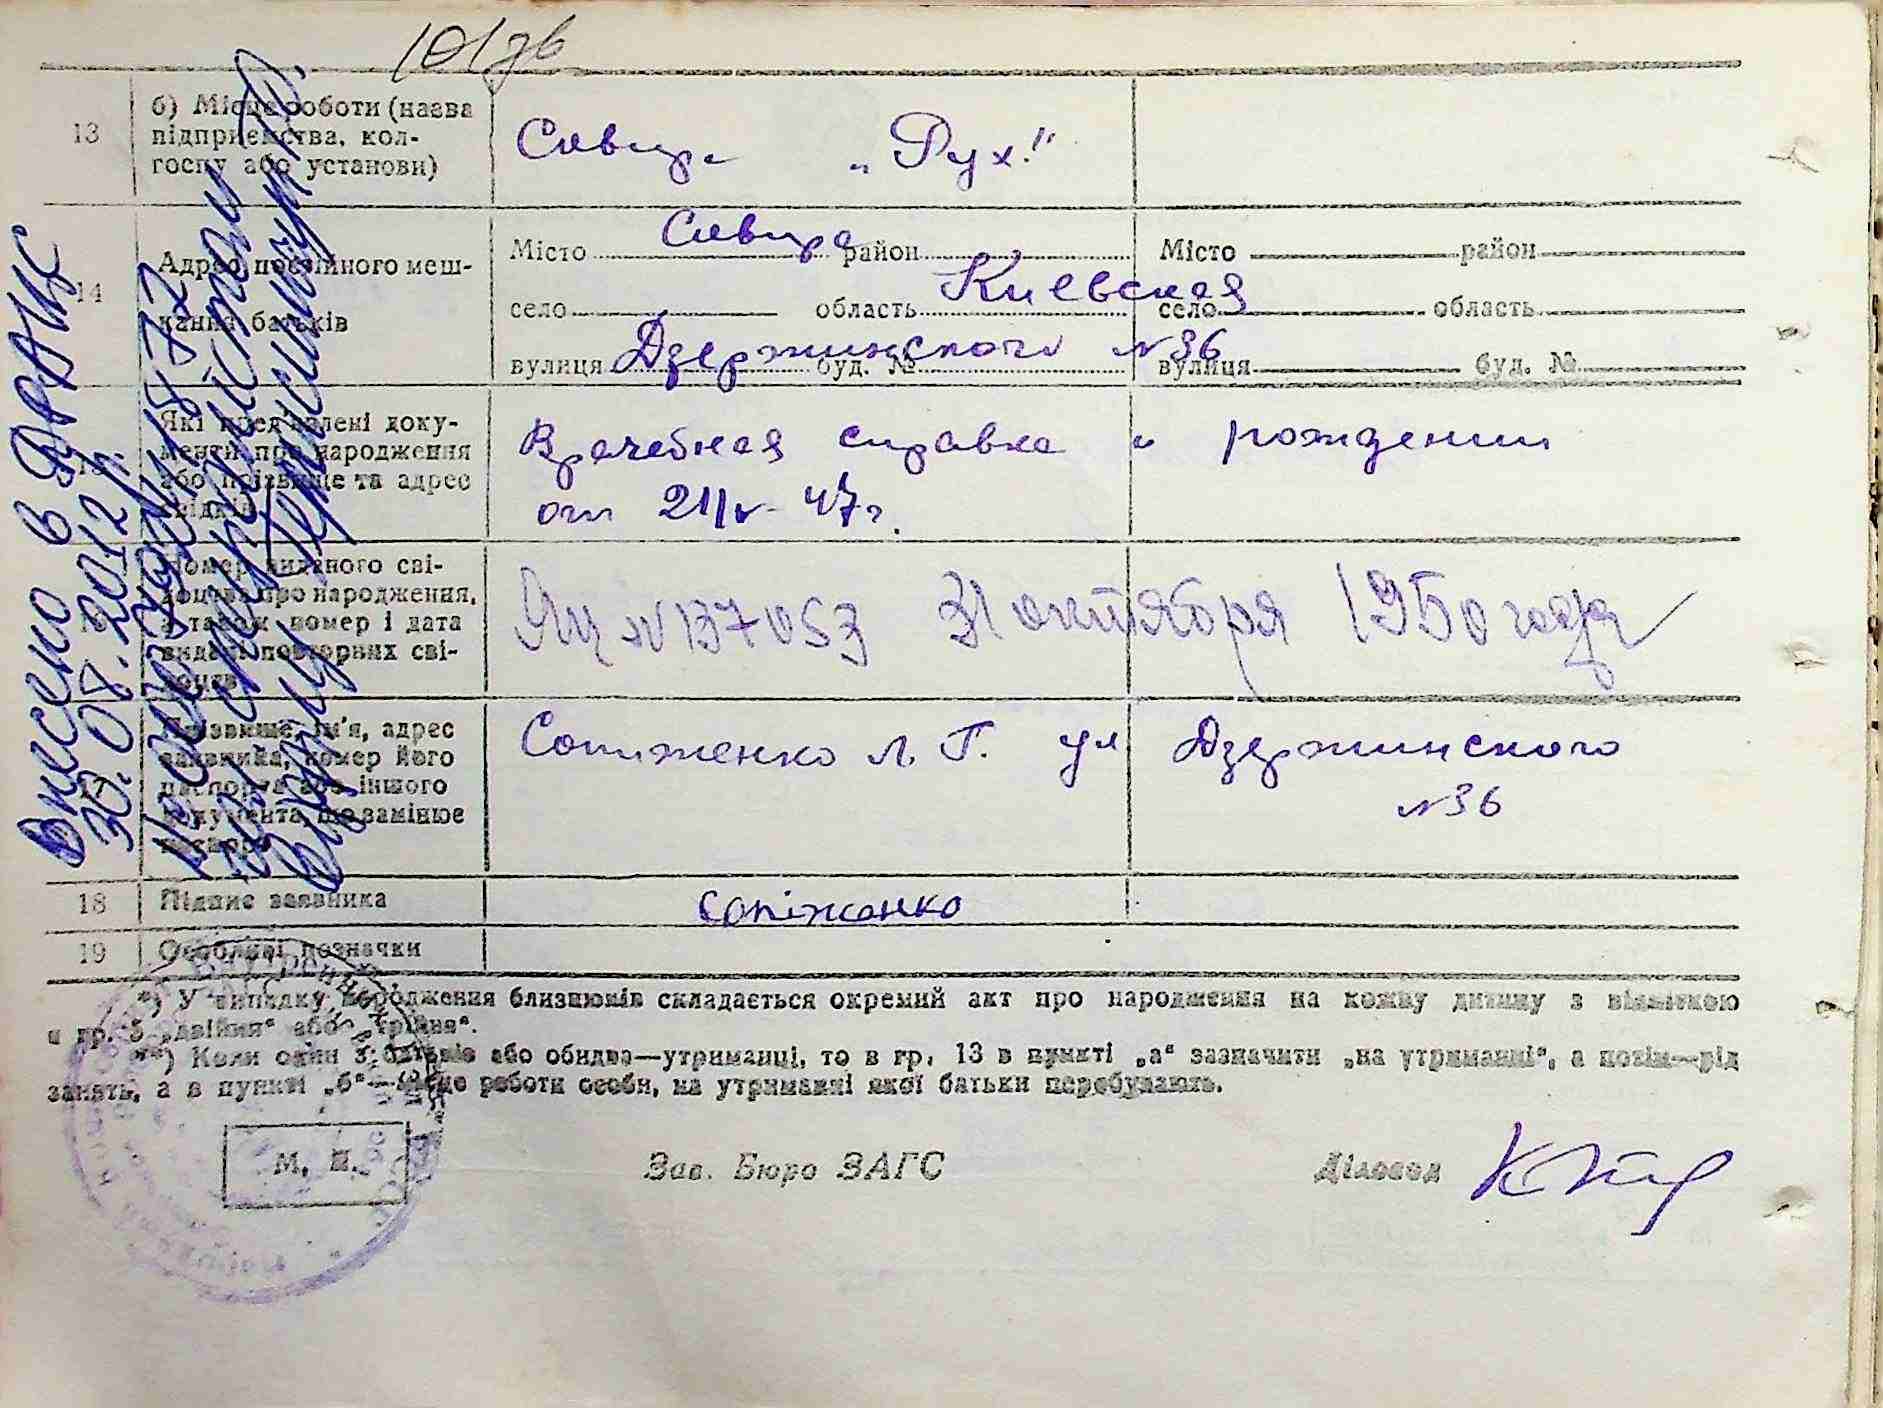 101зв
13
б) Місце роботи (назва
підприємства, кол-
госпу або установи)
Сквира „Рух!"
14
Адрес постійного меш-
кання батьків
Місто Сквира район
село область Киевская
вулиця Дзержинского буд. № N36
Місто район
село область
вулиця буд. №
Які пред'явлені доку-
менти про народження
або прізвище та адрес
свідків
Врачебная справка о рождении
от 21/V-47г.
Номер виданого сві-
доцтва про народження,
а також номер і дата
видачі повторних сві-
доцтв
ЯЦ N137053 31 октября 1950 года
17
Прізвище, ім'я, адрес
заявника, номер його
паспорта або іншого
документа, що замінює
паспорт
Сопиженко Л. Г. ул Дзержинского
N36
18
Підпис заявника
Сопіженко
19
Особливі позначки
*) У випадку народження близнюків складається окремий акт про народження на кожну дитину з відміткою
в гр. 5 „двійня" або „трійня".
**) Коли один з батьків або обидва—утриманці, то в гр. 13 в пункті „а" зазначити „на утриманні", а потім—рід
занять, а в пункті „б"—місце роботи особи, на утриманні якої батьки перебувають.
М. П.
Зав. Бюро ЗАГС
Діловод
Внесено в ДРАЦС
30.08.2012р.